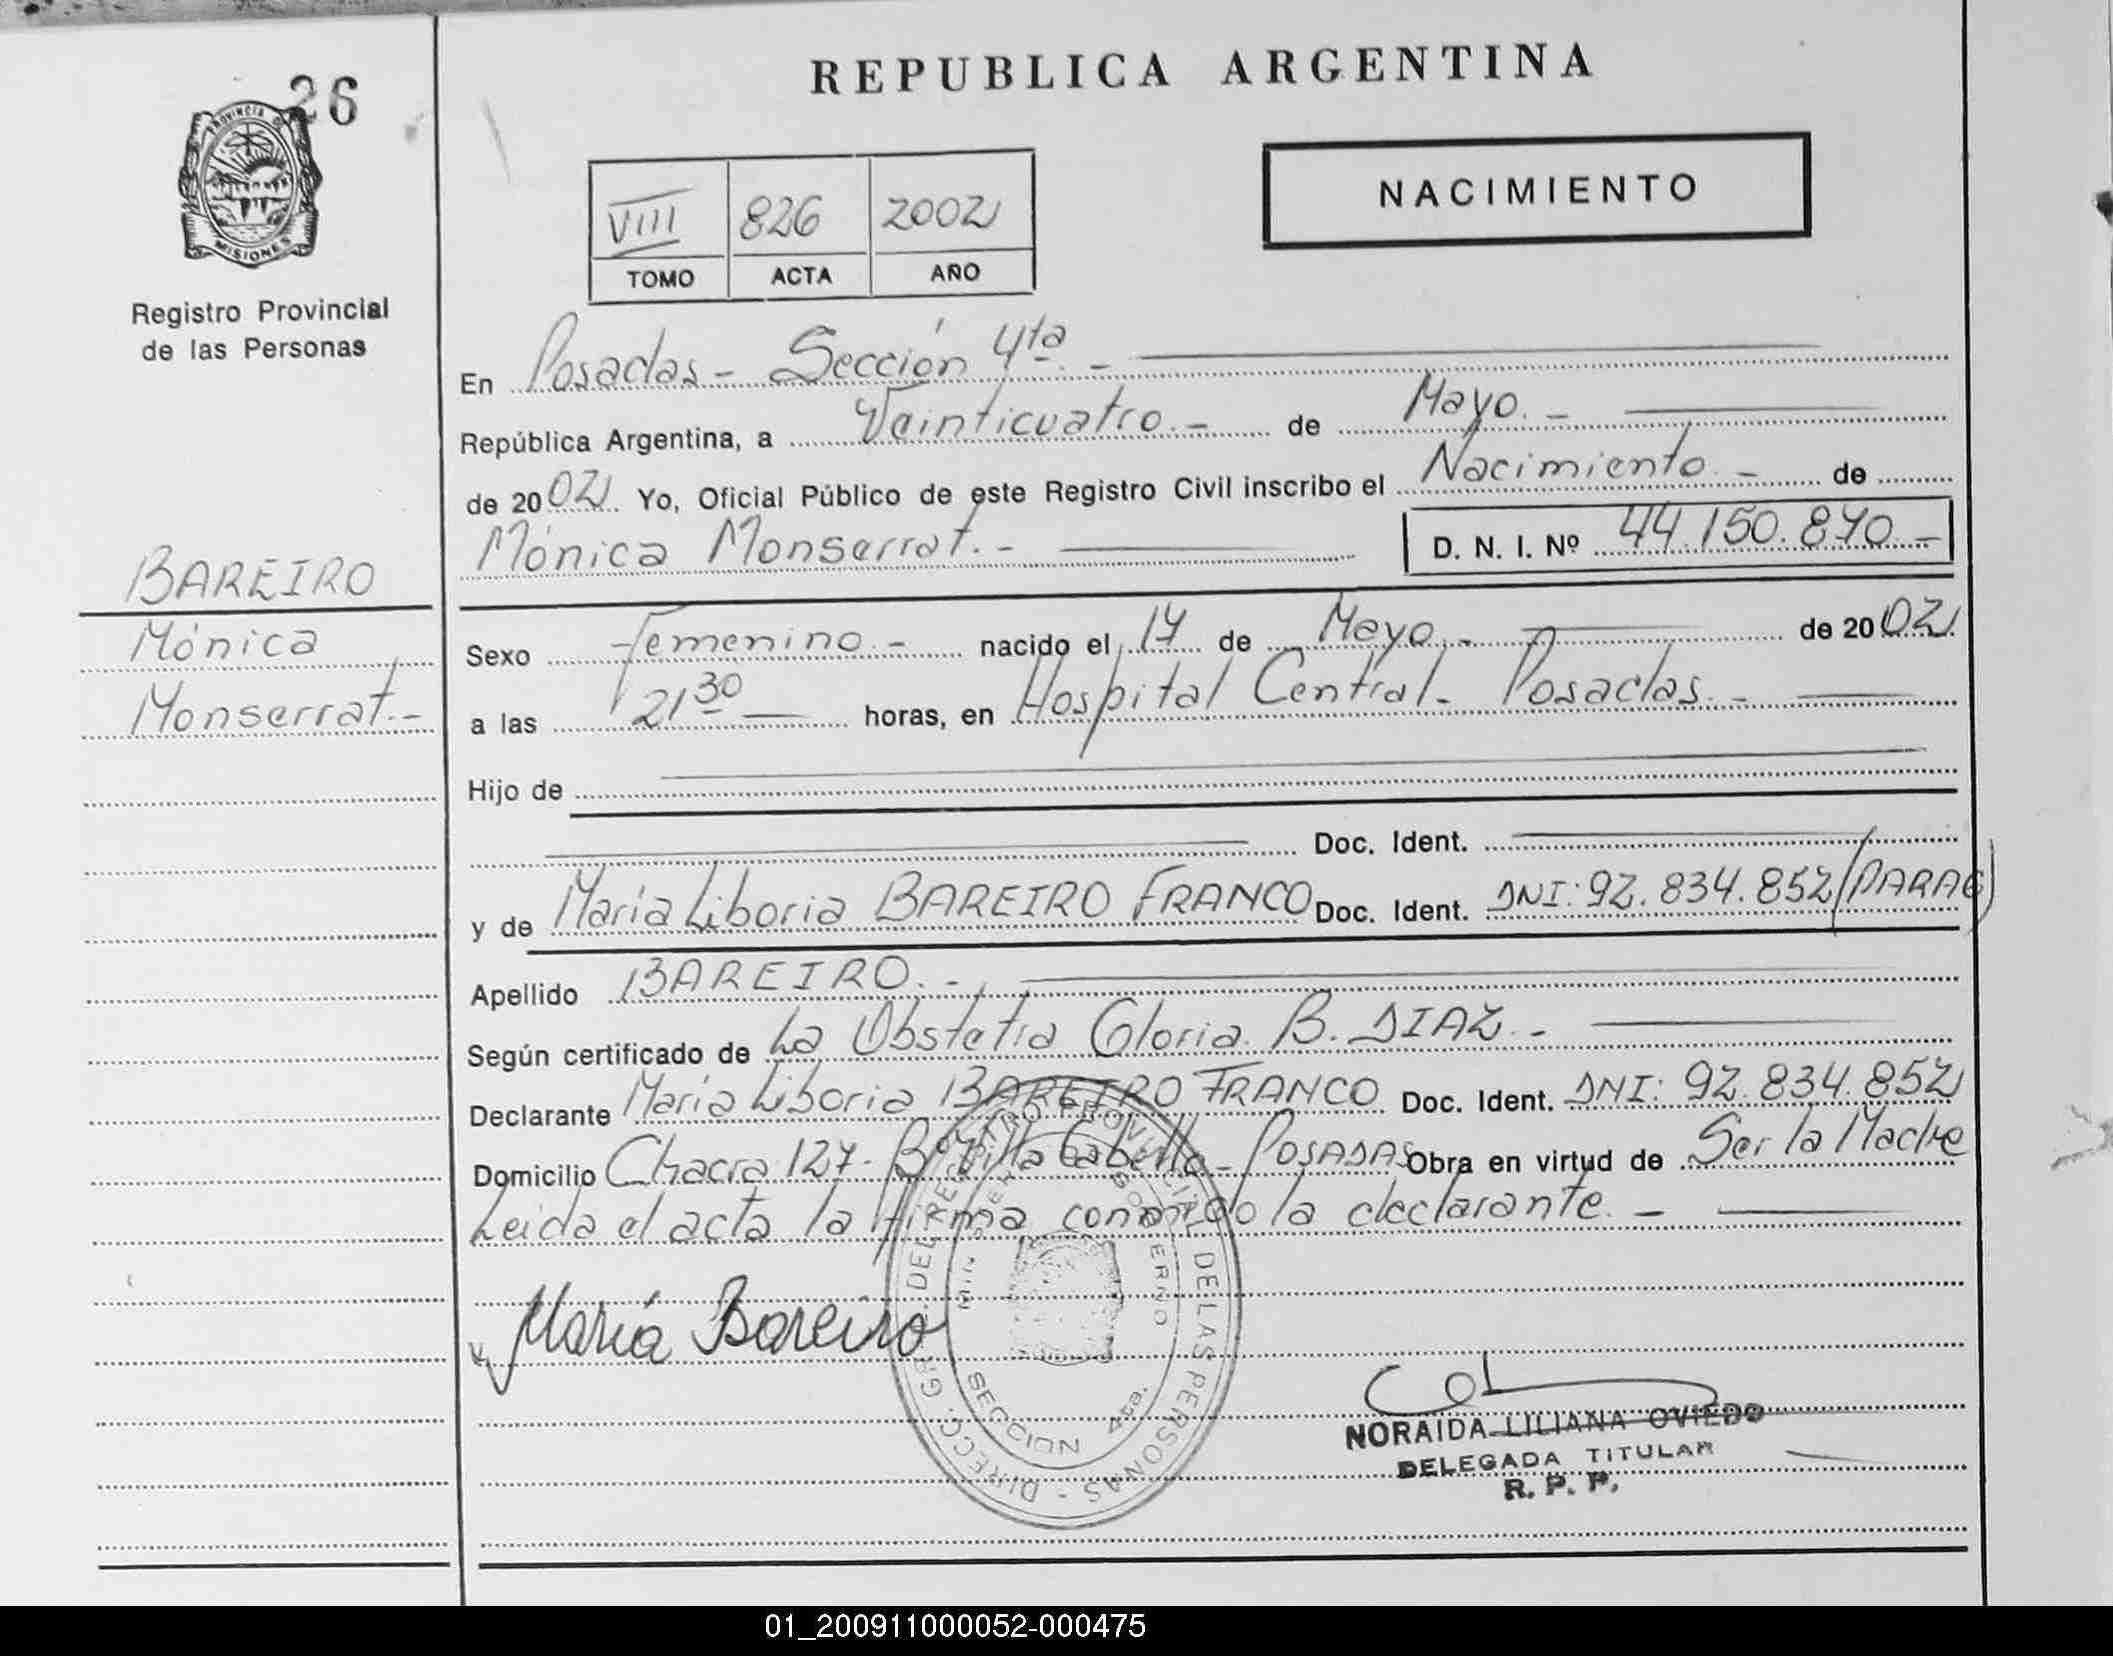 REPUBLICA ARGENTINA
26
PROVINCIA DE
MISIONES
Registro Provincial
de las Personas
NACIMIENTO
VIII 826 2002
TOMO ACTA AÑO
En Posadas - Sección 4ta. -
República Argentina, a Veinticuatro. - de Mayo. -
de 2002. Yo, Oficial Público de este Registro Civil inscribo el Nacimiento. - de
Mónica Monserrat. - D. N. I. Nº 44.150.870.-
BAREIRO
Mónica
Monserrat. -
Sexo Femenino. - nacido el 17 de Mayo. - de 2002.
a las 21 30 horas, en Hospital Central - Posadas. -
Hijo de
Doc. Ident.
y de María Liboria BAREIRO FRANCO Doc. Ident. DNI: 92.834.852 (PARAG)
Apellido BAREIRO. -
Según certificado de La Obstetra Gloria B. DIAZ. -
Declarante María Liboria BAREIRO FRANCO Doc. Ident. DNI: 92.834.852
Domicilio Chacra 127 - Bº Villa Cabello - POSADAS Obra en virtud de Ser la Madre
Leida el acta la firma conmigo la declarante. -
María Bareiro
DIRECC. GRAL. DEL REGISTRO PROVINCIAL DE LAS PERSONAS -
MIN. DE GOBIERNO
SECCION 4ta.
NORAIDA LILIANA OVIEDO
DELEGADA TITULAR
R. P. P.
01_200911000052-000475